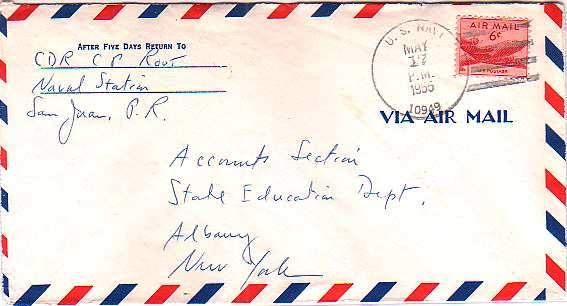 AFTER FIVE DAYS RETURN TO
CDR C P Root
Naval Station
San Juan, P.R.
U. S. NAVY
MAY
17
P.M.
1955
10949
AIR MAIL
6¢
U.S. POSTAGE
VIA AIR MAIL
Accounts Section
State Education Dept.
Albany
New York